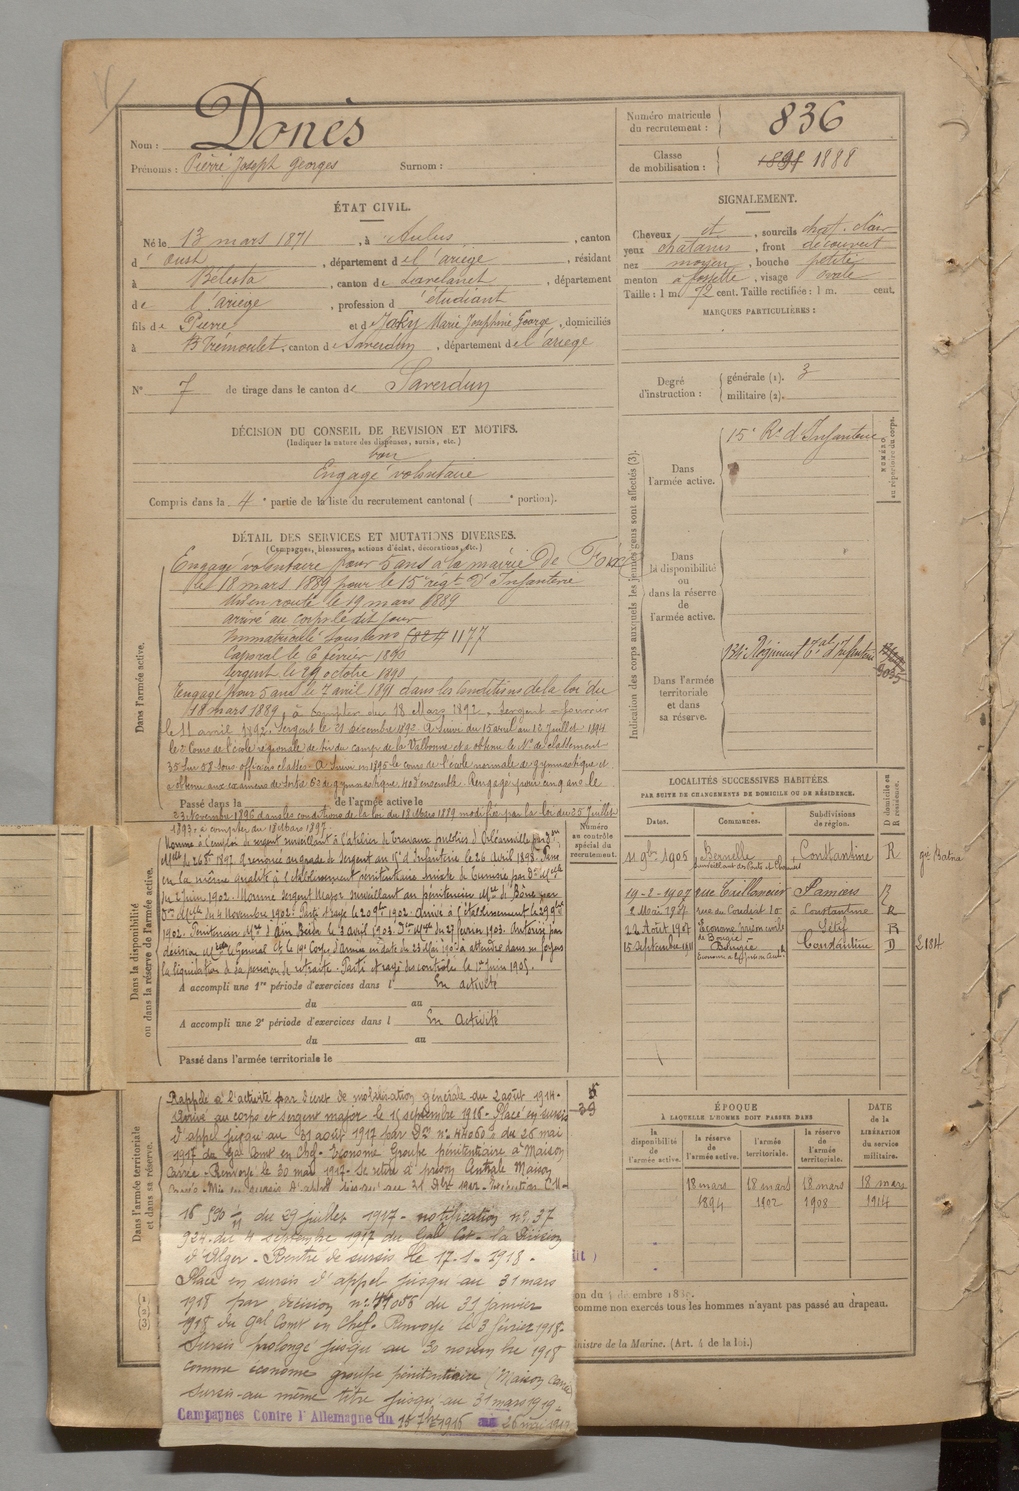 Nom : Donès
Prénoms : Pierre Joseph Georges Surnom :
Numéro matricule du recrutement : 836
Classe de mobilisation : 1891 1888
ÉTAT CIVIL.
Né le 13 mars 1871, à Aulus, canton
d'Oust, département de l'ariège, résidant
à Bélesta, canton de Lavelanet, département
de l'ariège, profession d'étudiant
fils de Pierre et d Joséphine George, domiciliés
à Trémoulet, canton de Saverdun, département de l'ariège
N° 7 de tirage dans le canton de Saverdun
SIGNALEMENT.
Cheveux et, sourcils chat. clair
yeux chatains, front découvert
nez moyen, bouche petite
menton à fossette, visage ovale
Taille : 1 m. 72 cent. Taille rectifiée : 1 m. cent.
MARQUES PARTICULIÈRES :
Degré d'instruction : générale (1). 3
militaire (2).
DÉCISION DU CONSEIL DE REVISION ET MOTIFS.
(Indiquer la nature des dispenses, sursis, etc.)
bon
Engagé volontaire
Compris dans la 4e partie de la liste du recrutement cantonal ( e portion).
DÉTAIL DES SERVICES ET MUTATIONS DIVERSES.
(Campagnes, blessures, actions d'éclat, décorations, etc.)
Dans l'armée active.
Engagé volontaire pour 5 ans à la mairie de Foix
le 18 mars 1889 pour le 15e regt D'Infanterie
mis en route le 19 mars 1889
arrivé au corps le dit jour
Immatriculé sous le no 1177
Caporal le 6 février 1890
Sergent le 29 octobre 1890
Rengagé pour 5 ans le 7 avril 1891 dans les conditions de la loi du
18 mars 1889, à compter du 18 Mars 1892. Sergent fourrier
le 11 avril 1892. Sergent le 21 décembre 1892. A suivi du 15 avril au 12 Juillet 1894
le 2e Cours de l'école régionale de tir du camp de la Valbonne et a obtenu le No de classement
35 sur 58 sous officiers classés. A suivi en 1895 le cours de l'école normale de gymnastique et
a obtenu aux examens de sortie de gymnastique. Rengagé pour cinq ans le
Passé dans la de l'armée active le
23 Novembre 1896 dans les conditions de la loi du 18 Mars 1889 modifiée par la loi du 25 Juillet
1893, à compter du 18 Mars 1897
Dans la disponibilité ou dans la réserve de l'armée active.
Nommé à l'emploi de sergent surveillant à l'atelier de Travaux publics d'Orléansville par Don
Mlle du 26 1897. au grade de Sergent au 15e d'Infanterie le 26 Avril 1898. Passé
en la même qualité à l'établissement pénitentiaire mixte de Tunisie par Don Mlle
du 2 juin 1902. Nommé sergent Major surveillant au pénitencier Mre de Bône par
Don Mlle du 4 Novembre 1902. 1902. Arrivé à l'établissement le
1902. Pénitencier Mre d'Ain Beida le 3 avril 1903. Don Mlle du 27 février 1903. Autorisé par
décision Mr le Général Ct le 19e Corps d'armée en date du 23 Mai 1905 à attendre dans ses foyers
la liquidation de sa pension de retraite. Parti et rayé des contrôles le 1er juin 1905.
A accompli une 1re période d'exercices dans l En activité
du au
A accompli une 2e période d'exercices dans l En activité
du au
Passé dans l'armée territoriale le
Numéro au contrôle spécial du recrutement.
Dans l'armée territoriale et dans sa réserve.
Rappelé à l'activité par décret de mobilisation générale du 2 août 1914.
Arrivé au corps et sergent major le 15 septembre 1916. Placé en sursis
d'appel jusqu'au 31 août 1917 par Don no 44060 du 26 mai
1917 du Gal Comt en Chef. Econome Groupe pénitentiaire à Maison
Carrée. Renvoyé le 30 mai 1917. Se retire à prison Centrale Maison
Carrée. Mis en sursis d'appel jusqu'au 31 Dbre 1917.
16 du 29 juillet 1917 - notification no 37
934 du 4 septembre 1917 du Gal Ct la Division
d'Alger. Rentré de sursis le 17-1-1918.
Placé en sursis d'appel jusqu'au 31 mars
1918 par décision no du 31 janvier
1918 du Gal Comt en Chef. Renvoyé le 3 février 1918.
Sursis prolongé jusqu'au 30 novembre 1918
comme économe groupe pénitentiaire (Maison Carrée
Sursis au même titre jusqu'au 31 mars 1919.
Campagnes Contre l'Allemagne du 15 7bre 1916 au 26 mai 1917
Indication des corps auxquels les jeunes gens sont affectés (3).
Dans l'armée active.
15e Rt d'Infanterie
Dans la disponibilité ou dans la réserve de l'armée active.
Dans l'armée territoriale et dans sa réserve.
134e Régiment Tal d'Infanterie
NUMÉRO au répertoire du corps.
LOCALITÉS SUCCESSIVES HABITÉES.
PAR SUITE DE CHANGEMENTS DE DOMICILE OU DE RÉSIDENCE.
Dates. Communes. Subdivisions de région. D domicile ou R résidence.
11 9bre 1905 Constantine R
19-2-1907 Pamiers R
2 Mai 1907 rue du Coudiat 10 à Constantine R
22 Août 1907 Econome prison civile de Bougie Sétif R
15 Septembre 1911 Bougie Constantine D
ÉPOQUE
À LAQUELLE L'HOMME DOIT PASSER DANS
la disponibilité de l'armée active. la réserve de l'armée active. l'armée territoriale. la réserve de l'armée territoriale.
DATE de la LIBÉRATION du service militaire.
18 mars 1894 18 mars 1902 18 mars 1908 18 mars 1914
comme non exercés tous les hommes n'ayant pas passé au drapeau.
nistre de la Marine. (Art. 4 de la loi.)